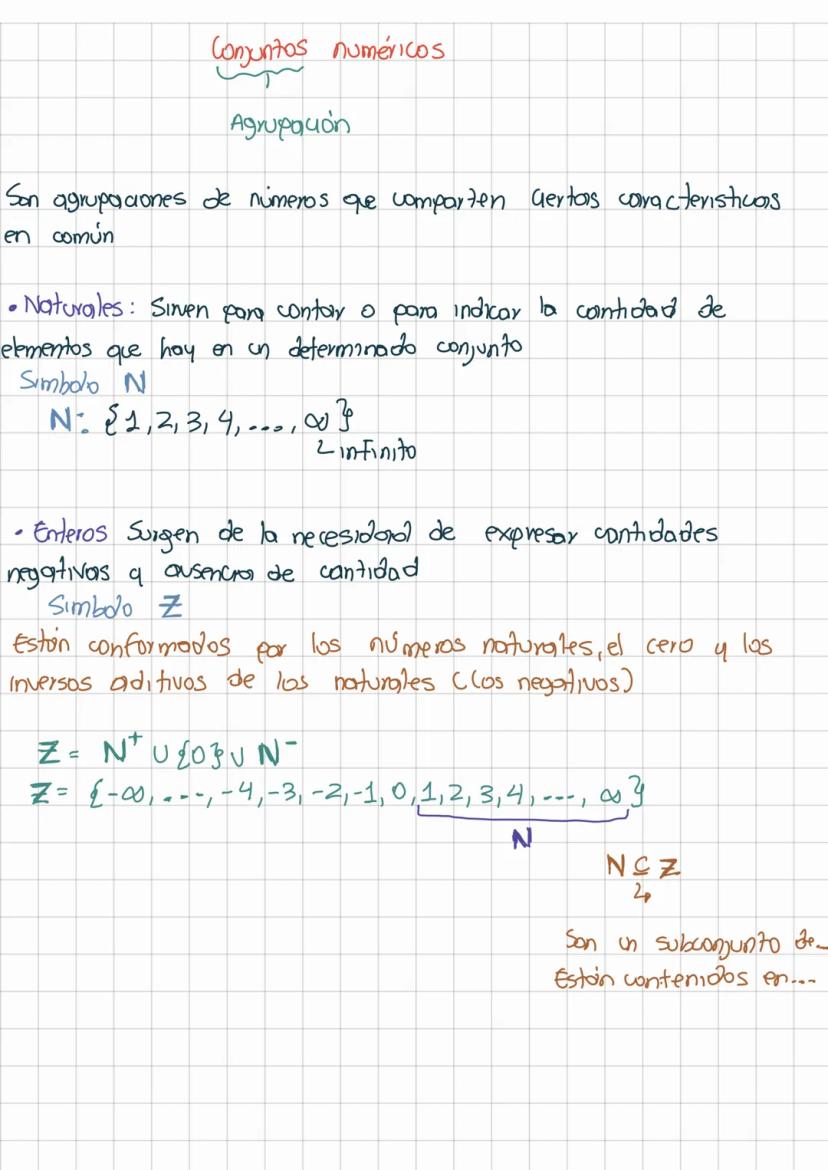 Conjuntos numéricos
Agrupación
Son agrupaciones de números que comparten ciertas caracteristicas
en común
• Naturales: Sirven para contar o para indicar la cantidad de
elementos que hay en un determinado conjunto
Simbolo N
N: {1, 2, 3, 4, ..., ∞}
infinito
• Enteros Surgen de la necesidad de expresar cantidades
negativas y ausencia de cantidad
Simbolo Z
Están conformados por los números naturales, el cero y los
inversos aditivos de los naturales (Los negativos)
Z = N⁺ ∪ {0} ∪ N⁻
Z = {-∞, ..., -4, -3, -2, -1, 0, 1, 2, 3, 4, ..., ∞}
N
N ⊆ Z
Son un subconjunto de...
Están contenidos en...